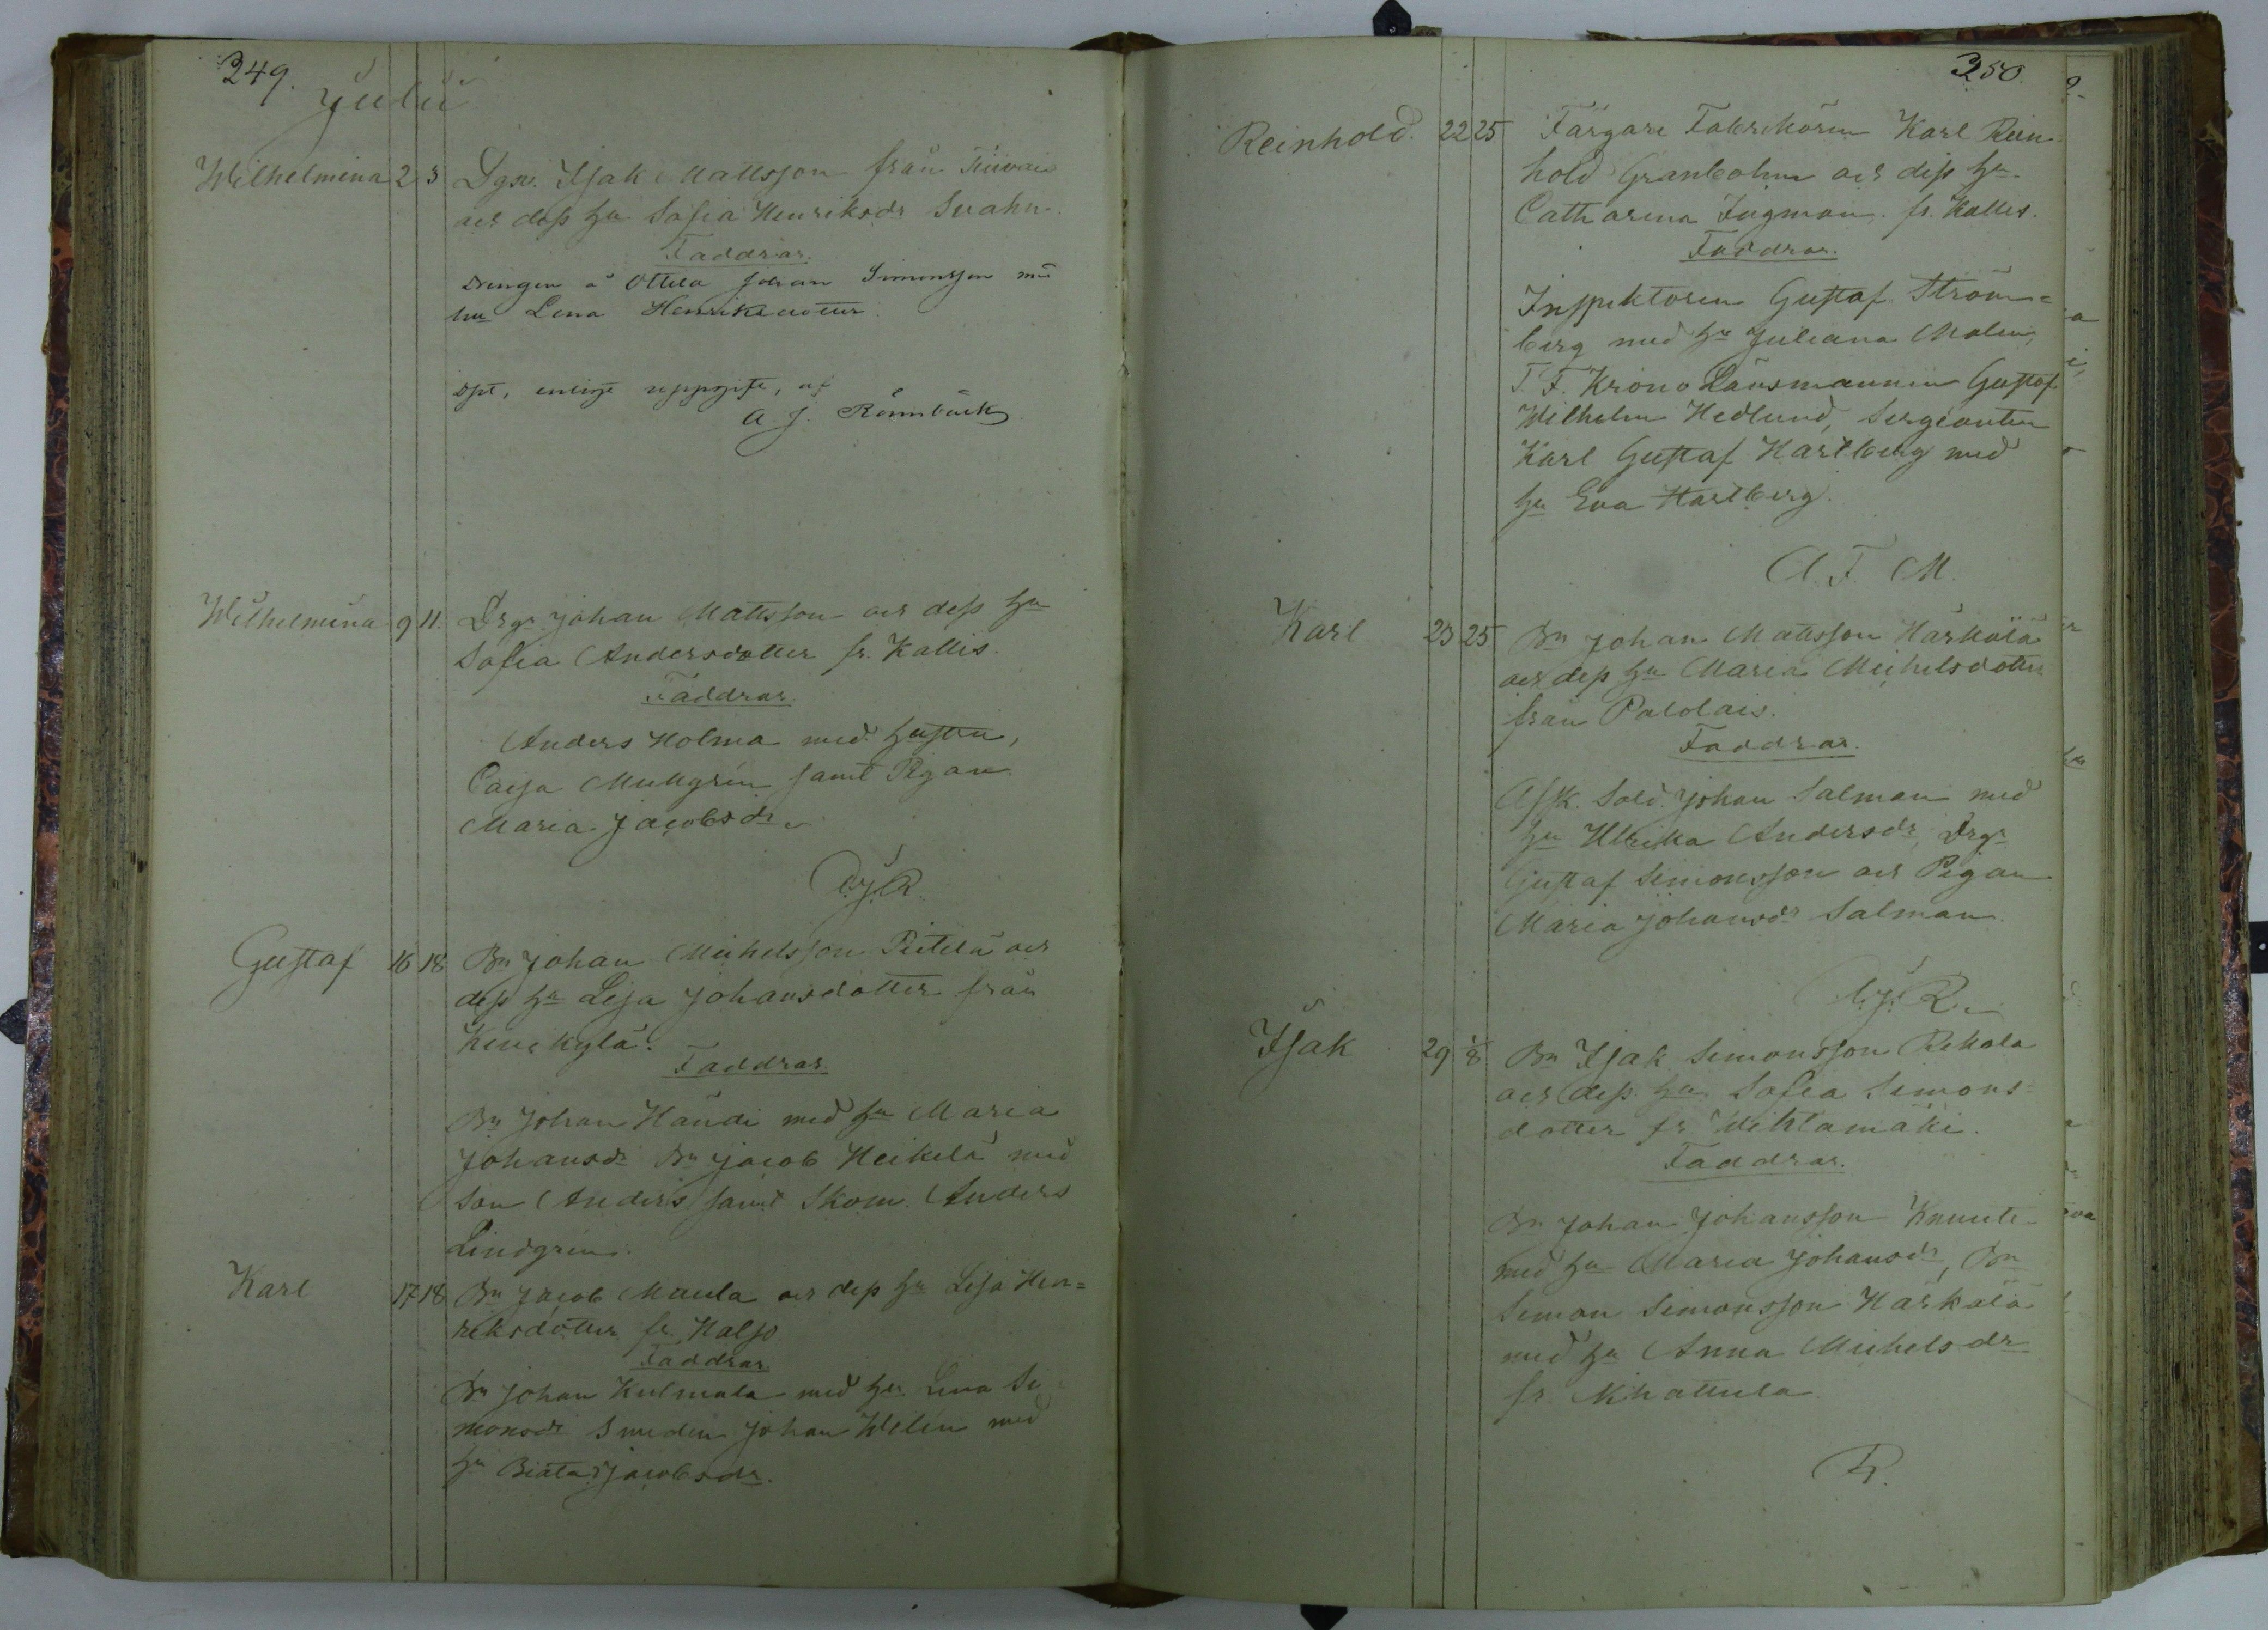 249.
Julii
Wilhelmina 2 3 Dgn. Isak Mattsson från
och dess hu Sofia Henriksdr Svahn.
Faddrar.
Drengen å Ottila Johan Simonsson me
hu Lena Henriksdotter
döpt, enligt uppgift, af
A J. Rönnbäck
Wilhelmina 9 11. Drgn Johan Mattsson och dess hu
Sofia Andersdotter fr. Kallis.
Faddrar.
Anders Holma med hustru,
Caisa Mullgrén samt Pigan
Maria Jacobsdr
A.J.R.
Gustaf 16 18 Bn Johan Michelsson Pietilä och
dess hu Lisa Johansdotter från
Kirckylä.
Faddrar.
Bn Johan Händi med hu Maria
Johansdr Bn Jacob Heikelä med
son Anders samt Skom. Anders
Lindgrén.
Karl 17 18 Bn Jacob Maula och dess hu Lisa Hen=
riksdotter fr. Halso
Faddrar.
Bn Johan Kulmala med hu Lena Si
monsdr Smeden Johan Welin med
hu Beata Jacobsdr.
350.
Reinhold. 22 25 Färgare Fabrikören Karl Rein
hold Granbohm och dess hu
Catharina Ingman. fr. Kallis.
Faddrar.
Inspektoren Gustaf Ström=
berg med hu Juliana Malin,
T. F. Krono Länsmannen Gustaf
Wilhelm Hedlund, Sergeanten
Karl Gustaf Karlberg med
hu Eva Karlberg.
A. F. M.
Karl 23 25 Bn Johan Mattsson Härkälä
och dess hu Maria Michelsdotter
från Palolais.
Faddrar.
Afsk. Sold. Johan Salman med
hu Ulrika Andersdr, Drgn
Gustaf Simonsson och Pigan
Maria Johansdr Salman.
A.J.R.
Isak 29 1/8 Bn Isak Simonsson Rekola
och dess hu Sofia Simons=
dotter fr. Wihtamäki.
Faddrar.
Bn Johan Johansson Knuuti
med hu Maria Johansdr, Bn
Simon Simonsson Härkälä
med hu Anna Michelsdr
fr. Khattula
R.